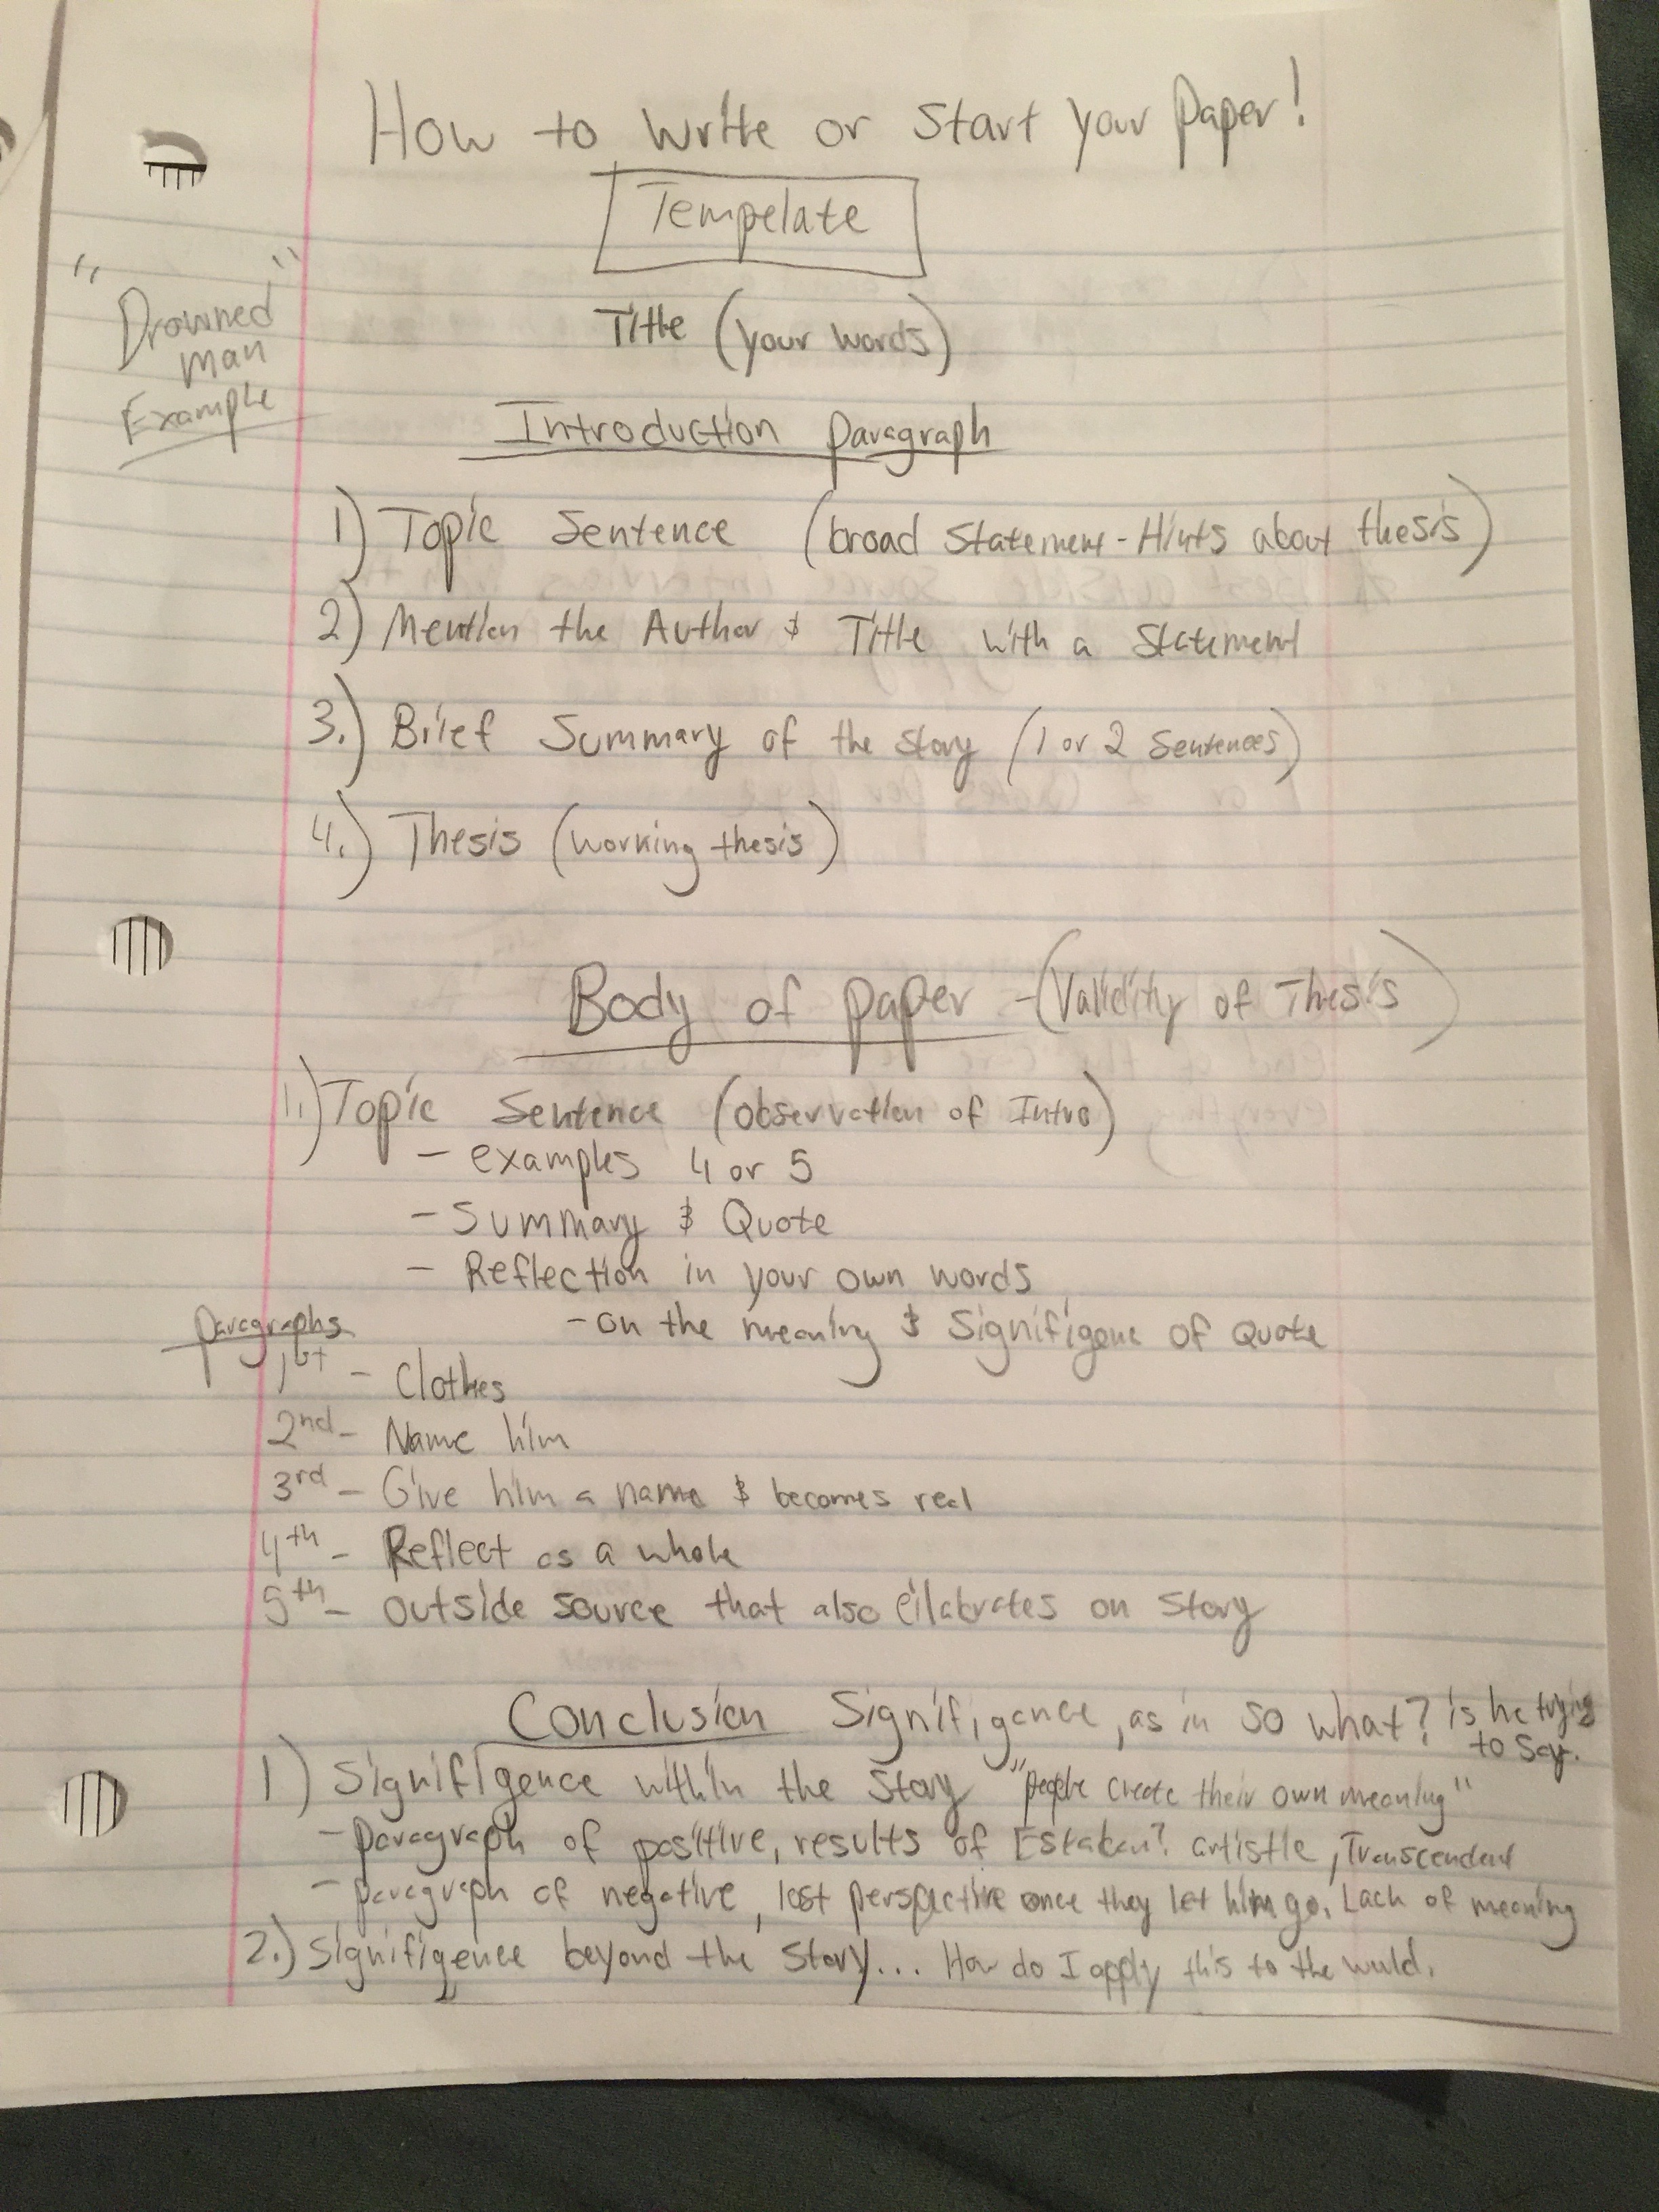 How to write or Start your paper!
Tempelate
"Drowned man Example"
Title (your words)
Introduction paragraph
1) Topic Sentence (broad Statement - Hints about thesis)
2) Mention the Author & Title with a Statement
3.) Brief Summary of the story (1 or 2 Sentences)
4.) Thesis (working thesis)
Body of paper - (Validity of Thesis)
1.) Topic Sentence (observation of Intro)
- examples 4 or 5
- Summary & Quote
- Reflection in your own words
- on the meaning & Signifigene of Quote
paragraphs
1st - Clothes
2nd - Name him
3rd - Give him a name & becomes real
4th - Reflect as a whole
5th - outside source that also eilabrates on Story
Conclusion Signifigence, as in so what? is he trying
to say.
1) Signifigence within the Story "people create their own meaning"
- paragraph of positive, results of Estaban? artistic, Transcendent
- paragraph of negative, lost perspective once they let him go. Lack of meaning
2.) Signifigence beyond the Story... How do I apply this to the world.